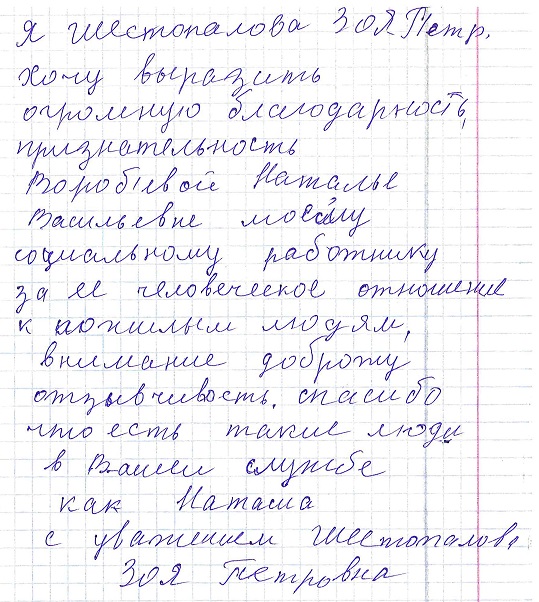 Я Шестопалова Зоя Петр.
хочу выразить
огромную благодарность,
признательность
Воробъевой Наталье
Васильевне моему
социальному работнику
за ее человеческое отношение
к пожилым людям,
внимание доброту
отзывчивость. спасибо
что есть такие люди
в Вашей службе
как Наташа
с уважением Шестопалова
Зоя Петровна